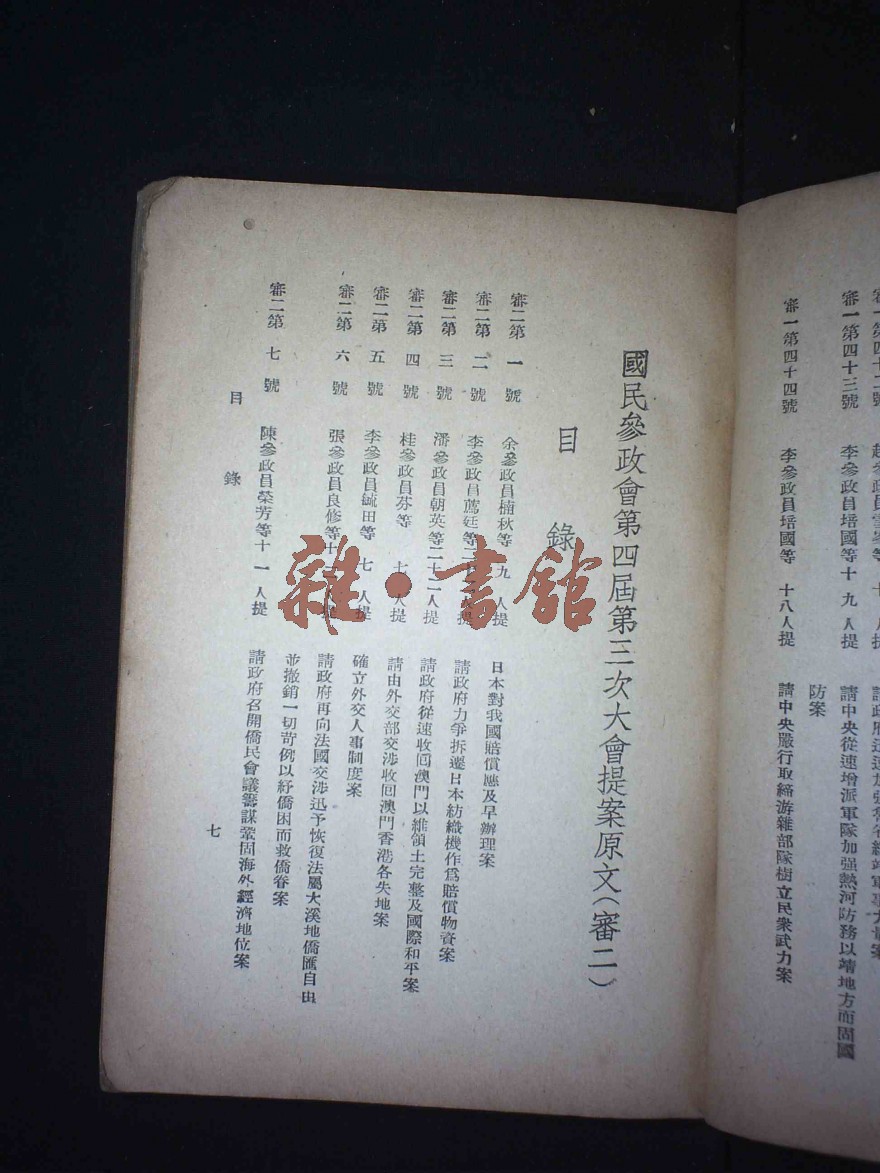 審一第四十三號 李參政員培國等十九人提 請中央從速增派軍隊加强熱河防務以靖地方而固國
防案
審一第四十四號 李參政員培國等 十八人提 請中央嚴行取締游雜部隊樹立民衆武力案
國民參政會第四屆第三次大會提案原文(審二)
目 錄
審二第 一 號 余參政員楠秋等 九 人提 日本對我國賠償應及早辦理案
審二第 二 號 李參政員薦廷等 人提 請政府力爭拆遷日本紡織機作爲賠償物資案
審二第 三 號 潘參政員朝英等二十二人提 請政府從速收囘澳門以維領土完整及國際和平案
審二第 四 號 桂參政員芬等 人提 請由外交部交涉收囘澳門香港各失地案
審二第 五 號 李參政員毓田等 七 人提 確立外交人事制度案
審二第 六 號 張參政員良修等十 提 請政府再向法國交涉迅予恢復法屬大溪地僑匯自由
並撤銷一切苛例以紓僑困而救僑眷案
審二第 七 號 陳參政員榮芳等十一人提 請政府召開僑民會議籌謀鞏固海外經濟地位案
目 錄
七
雜·書館